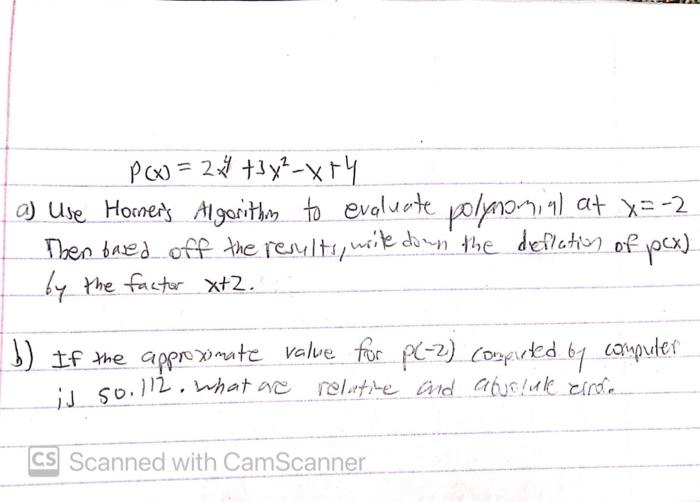 P(x) = 2x⁴ +3x²-x+4
a) Use Horner's Algorithm to evaluate polynomial at x=-2
Then based off the results, write down the deflation of p(x)
by the factor x+2.
b) If the approximate value for p(-2) computed by computer
is 50.112. what are relative and absolute error.
CS Scanned with CamScanner